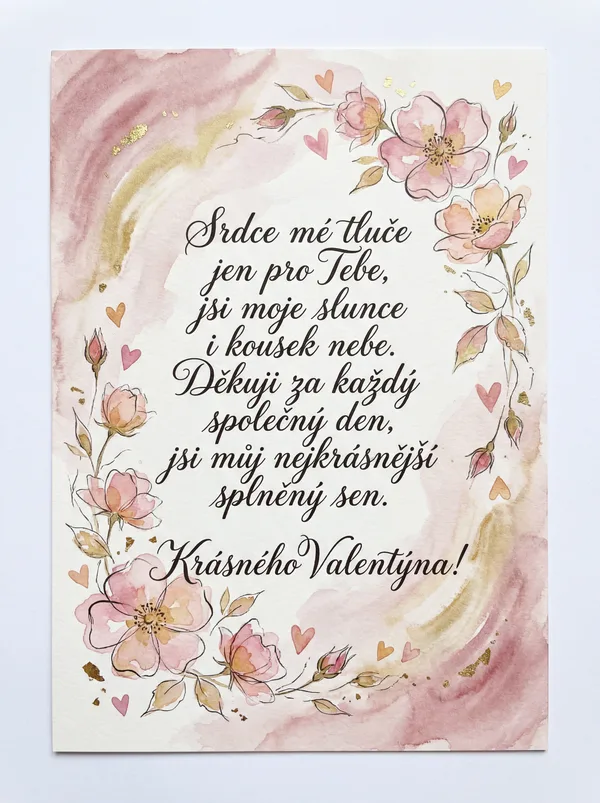 Srdce mé tluče
jen pro Tebe,
jsi moje slunce
i kousek nebe.
Děkuji za každý
společný den,
jsi můj nejkrásnější
splněný sen.
Krásného Valentýna!